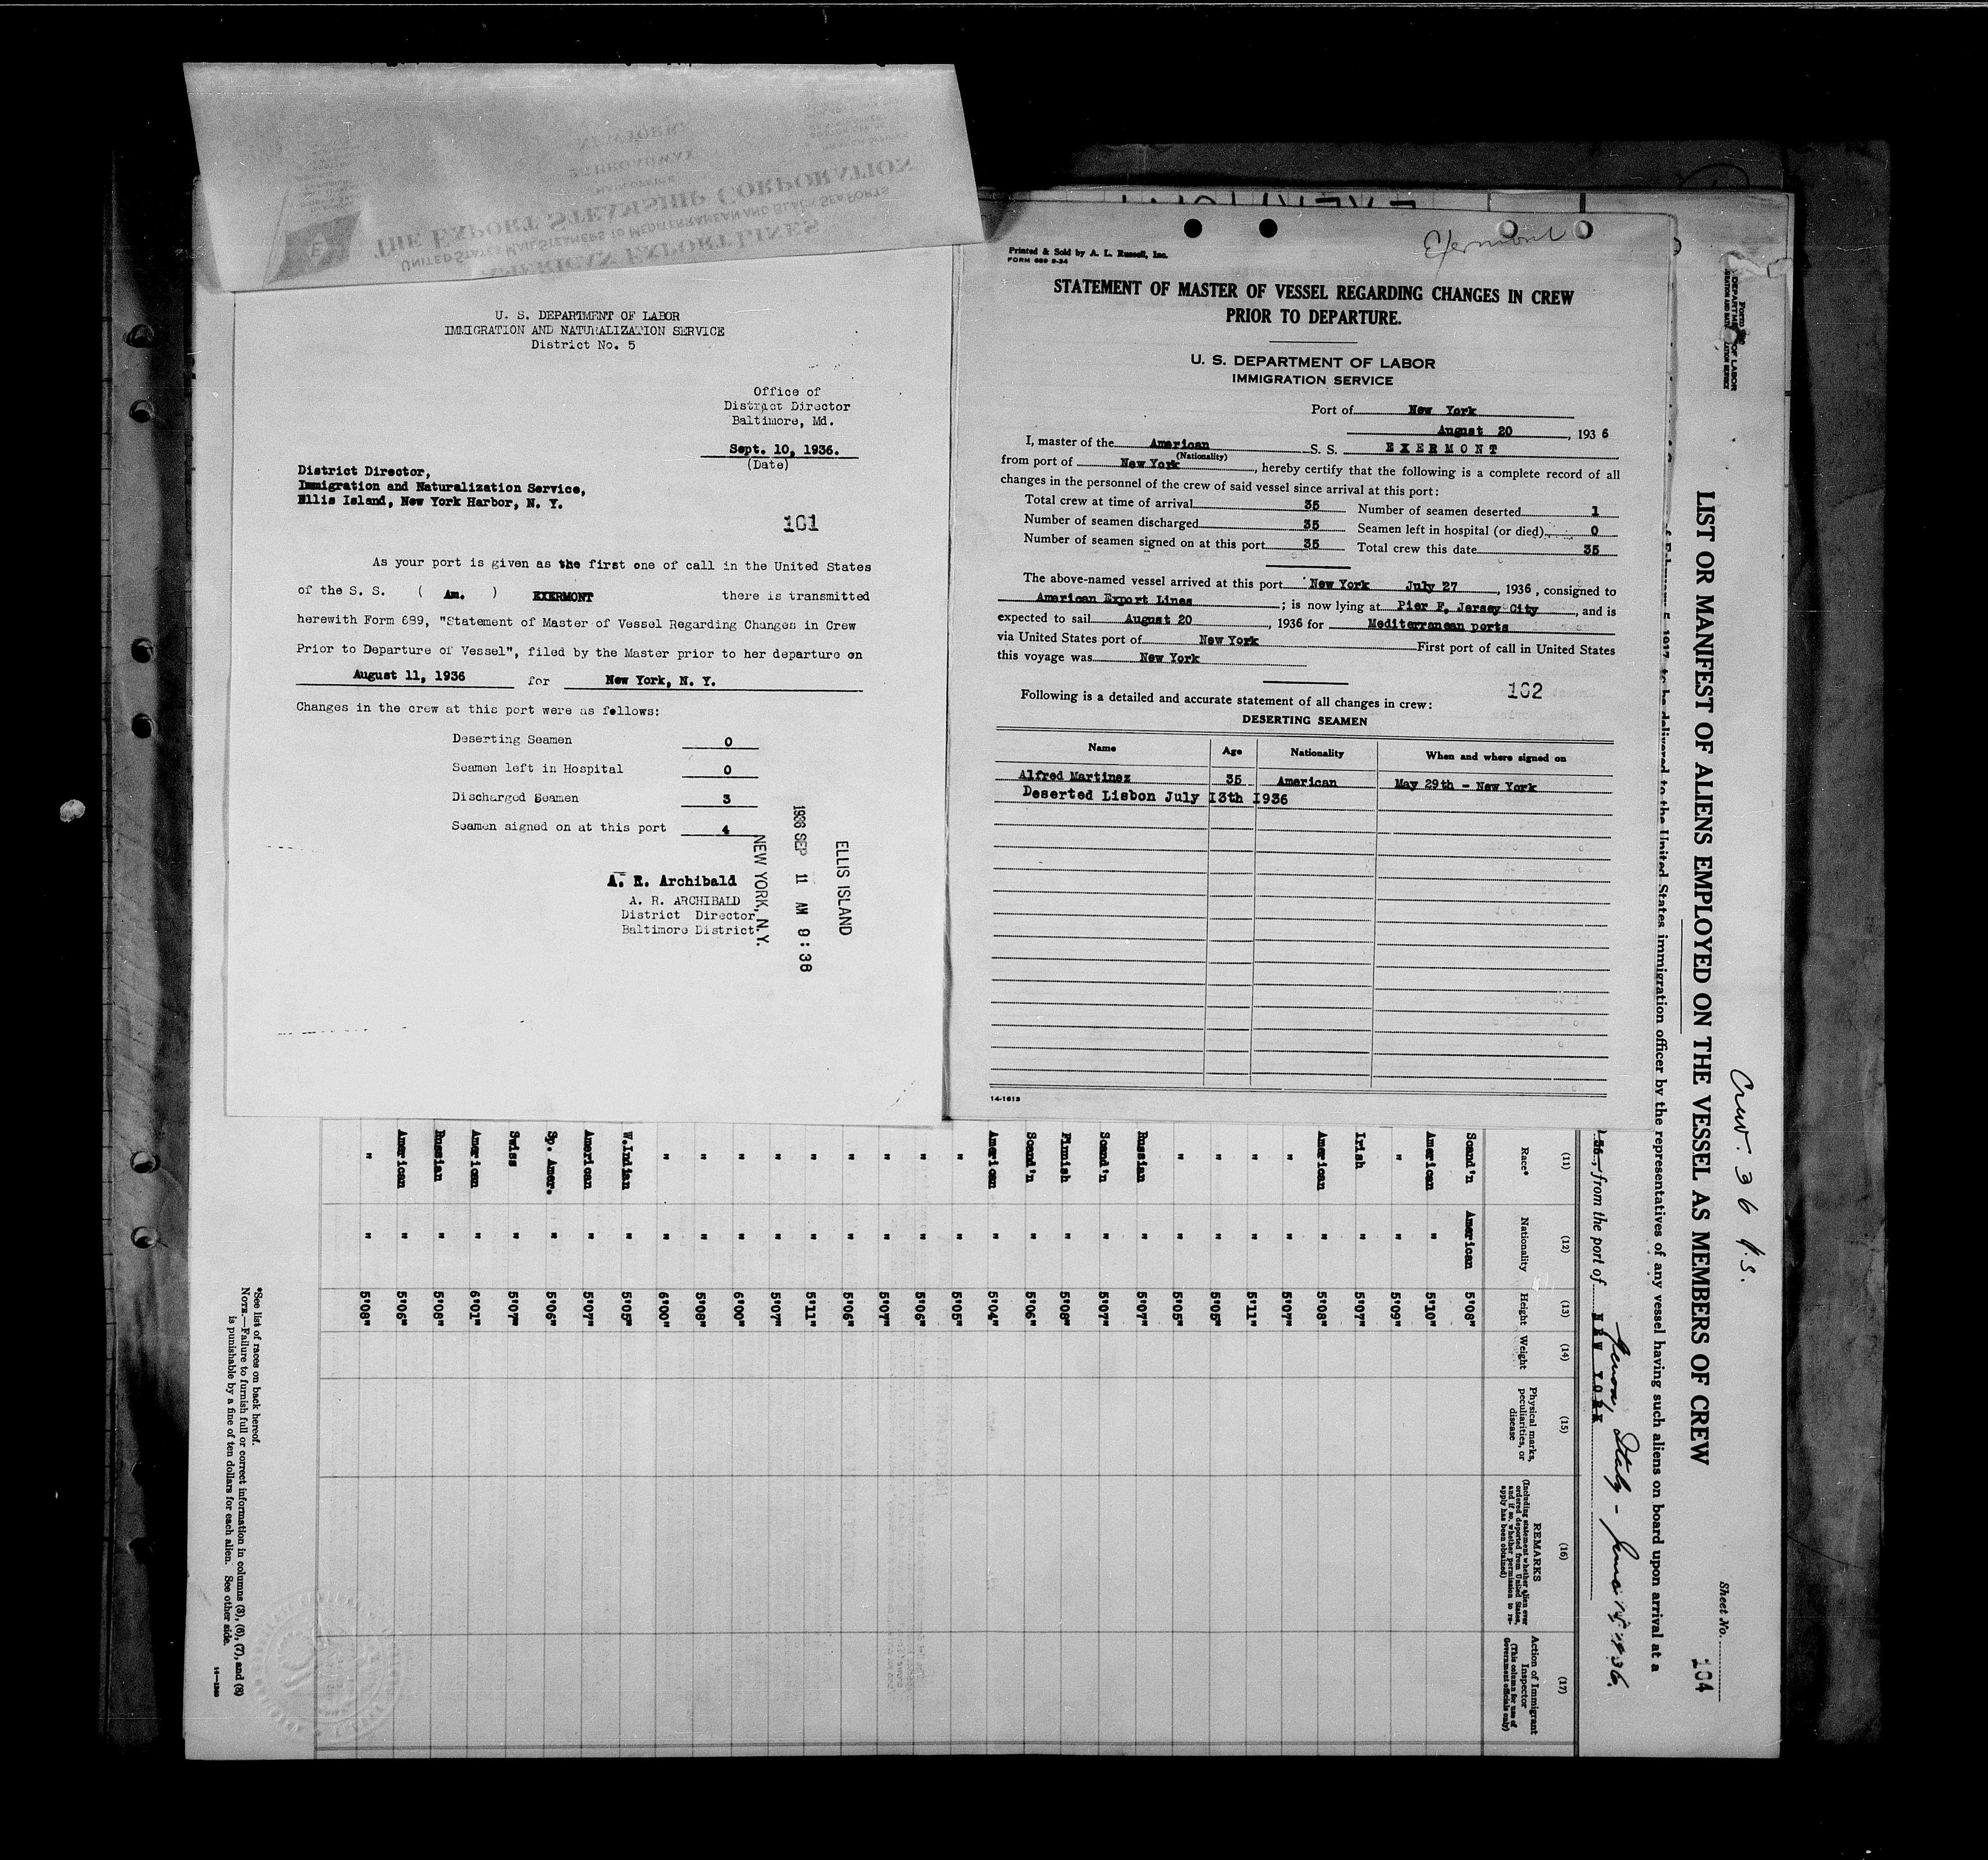 AMERICAN EXPORT LINES
UNITED STATES MAIL STEAMERS TO MEDITERRANEAN AND BLACK SEA PORTS
THE EXPORT STEAMSHIP CORPORATION
MAIN OFFICE
25 BROADWAY
NEW YORK
E
U. S. DEPARTMENT OF LABOR
IMMIGRATION AND NATURALIZATION SERVICE
District No. 5
Office of
District Director
Baltimore, Md.
Sept. 10, 1936.
(Date)
District Director,
Immigration and Naturalization Service,
Ellis Island, New York Harbor, N. Y.
101
As your port is given as the first one of call in the United States
of the S. S. ( Am. ) EXERMONT there is transmitted
herewith Form 689, "Statement of Master of Vessel Regarding Changes in Crew
Prior to Departure of Vessel", filed by the Master prior to her departure on
August 11, 1936 for New York, N. Y.
Changes in the crew at this port were as follows:
Deserting Seamen 0
Seamen left in Hospital 0
Discharged Seamen 3
Seamen signed on at this port 4
A. R. Archibald
A. R. ARCHIBALD
District Director,
Baltimore District.
ELLIS ISLAND
1936 SEP 11 AM 9:36
NEW YORK, N.Y.
Exermont
Printed & Sold by A. L. Russell, Inc.
FORM 689 9-34
STATEMENT OF MASTER OF VESSEL REGARDING CHANGES IN CREW
PRIOR TO DEPARTURE.
U. S. DEPARTMENT OF LABOR
IMMIGRATION SERVICE
Port of New York
August 20, 1936
I, master of the American S. S. EXERMONT
(Nationality)
from port of New York, hereby certify that the following is a complete record of all
changes in the personnel of the crew of said vessel since arrival at this port:
Total crew at time of arrival 35 Number of seamen deserted 1
Number of seamen discharged 35 Seamen left in hospital (or died) 0
Number of seamen signed on at this port 35 Total crew this date 35
The above-named vessel arrived at this port New York July 27, 1936, consigned to
American Export Lines; is now lying at Pier F, Jersey City, and is
expected to sail August 20, 1936 for Mediterranean ports
via United States port of New York First port of call in United States
this voyage was New York
102
Following is a detailed and accurate statement of all changes in crew:
DESERTING SEAMEN
Name Age Nationality When and where signed on
Alfred Martinez 35 American May 29th - New York
Deserted Lisbon July 13th 1936
14-1613
Crew. 36
Sheet No.
104
LIST OR MANIFEST OF ALIENS EMPLOYED ON THE VESSEL AS MEMBERS OF CREW
to be delivered to the United States immigration officer by the representatives of any vessel having such aliens on board upon arrival at a
Genoa, Italy - June 15, 1936.
from the port of NEW YORK
(11) (12) (13) (14) (15) (16) (17)
Race* Nationality Height Weight Physical marks, peculiarities, or disease REMARKS (Including statement whether alien ever ordered deported from United States, and if so, whether permission to reapply has been obtained) Action of Immigrant Inspector (This column for use of Government officials only)
Scand'n American 5'08"
American " 5'10"
" " 5'09"
Irish " 5'07"
American " 5'08"
" " 5'07"
" " 5'11"
" " 5'05"
" " 5'05"
Russian " 5'07"
Scand'n " 5'07"
Finnish " 5'08"
Scand'n " 5'06"
American " 5'04"
" " 5'05"
" " 5'06"
" " 5'07"
" " 5'06"
" " 5'11"
" " 5'07"
" " 6'00"
" " 5'08"
" " 6'00"
W.Indian " 5'05"
American " 5'07"
Sp. Amer. " 5'06"
Swiss " 5'07"
American " 6'01"
Russian " 5'08"
American " 5'06"
" " 5'08"
*See list of races on back hereof.
NOTE.—Failure to furnish full or correct information in columns (3), (6), (7), and (8)
is punishable by a fine of ten dollars for each alien. See other side.
14—1240